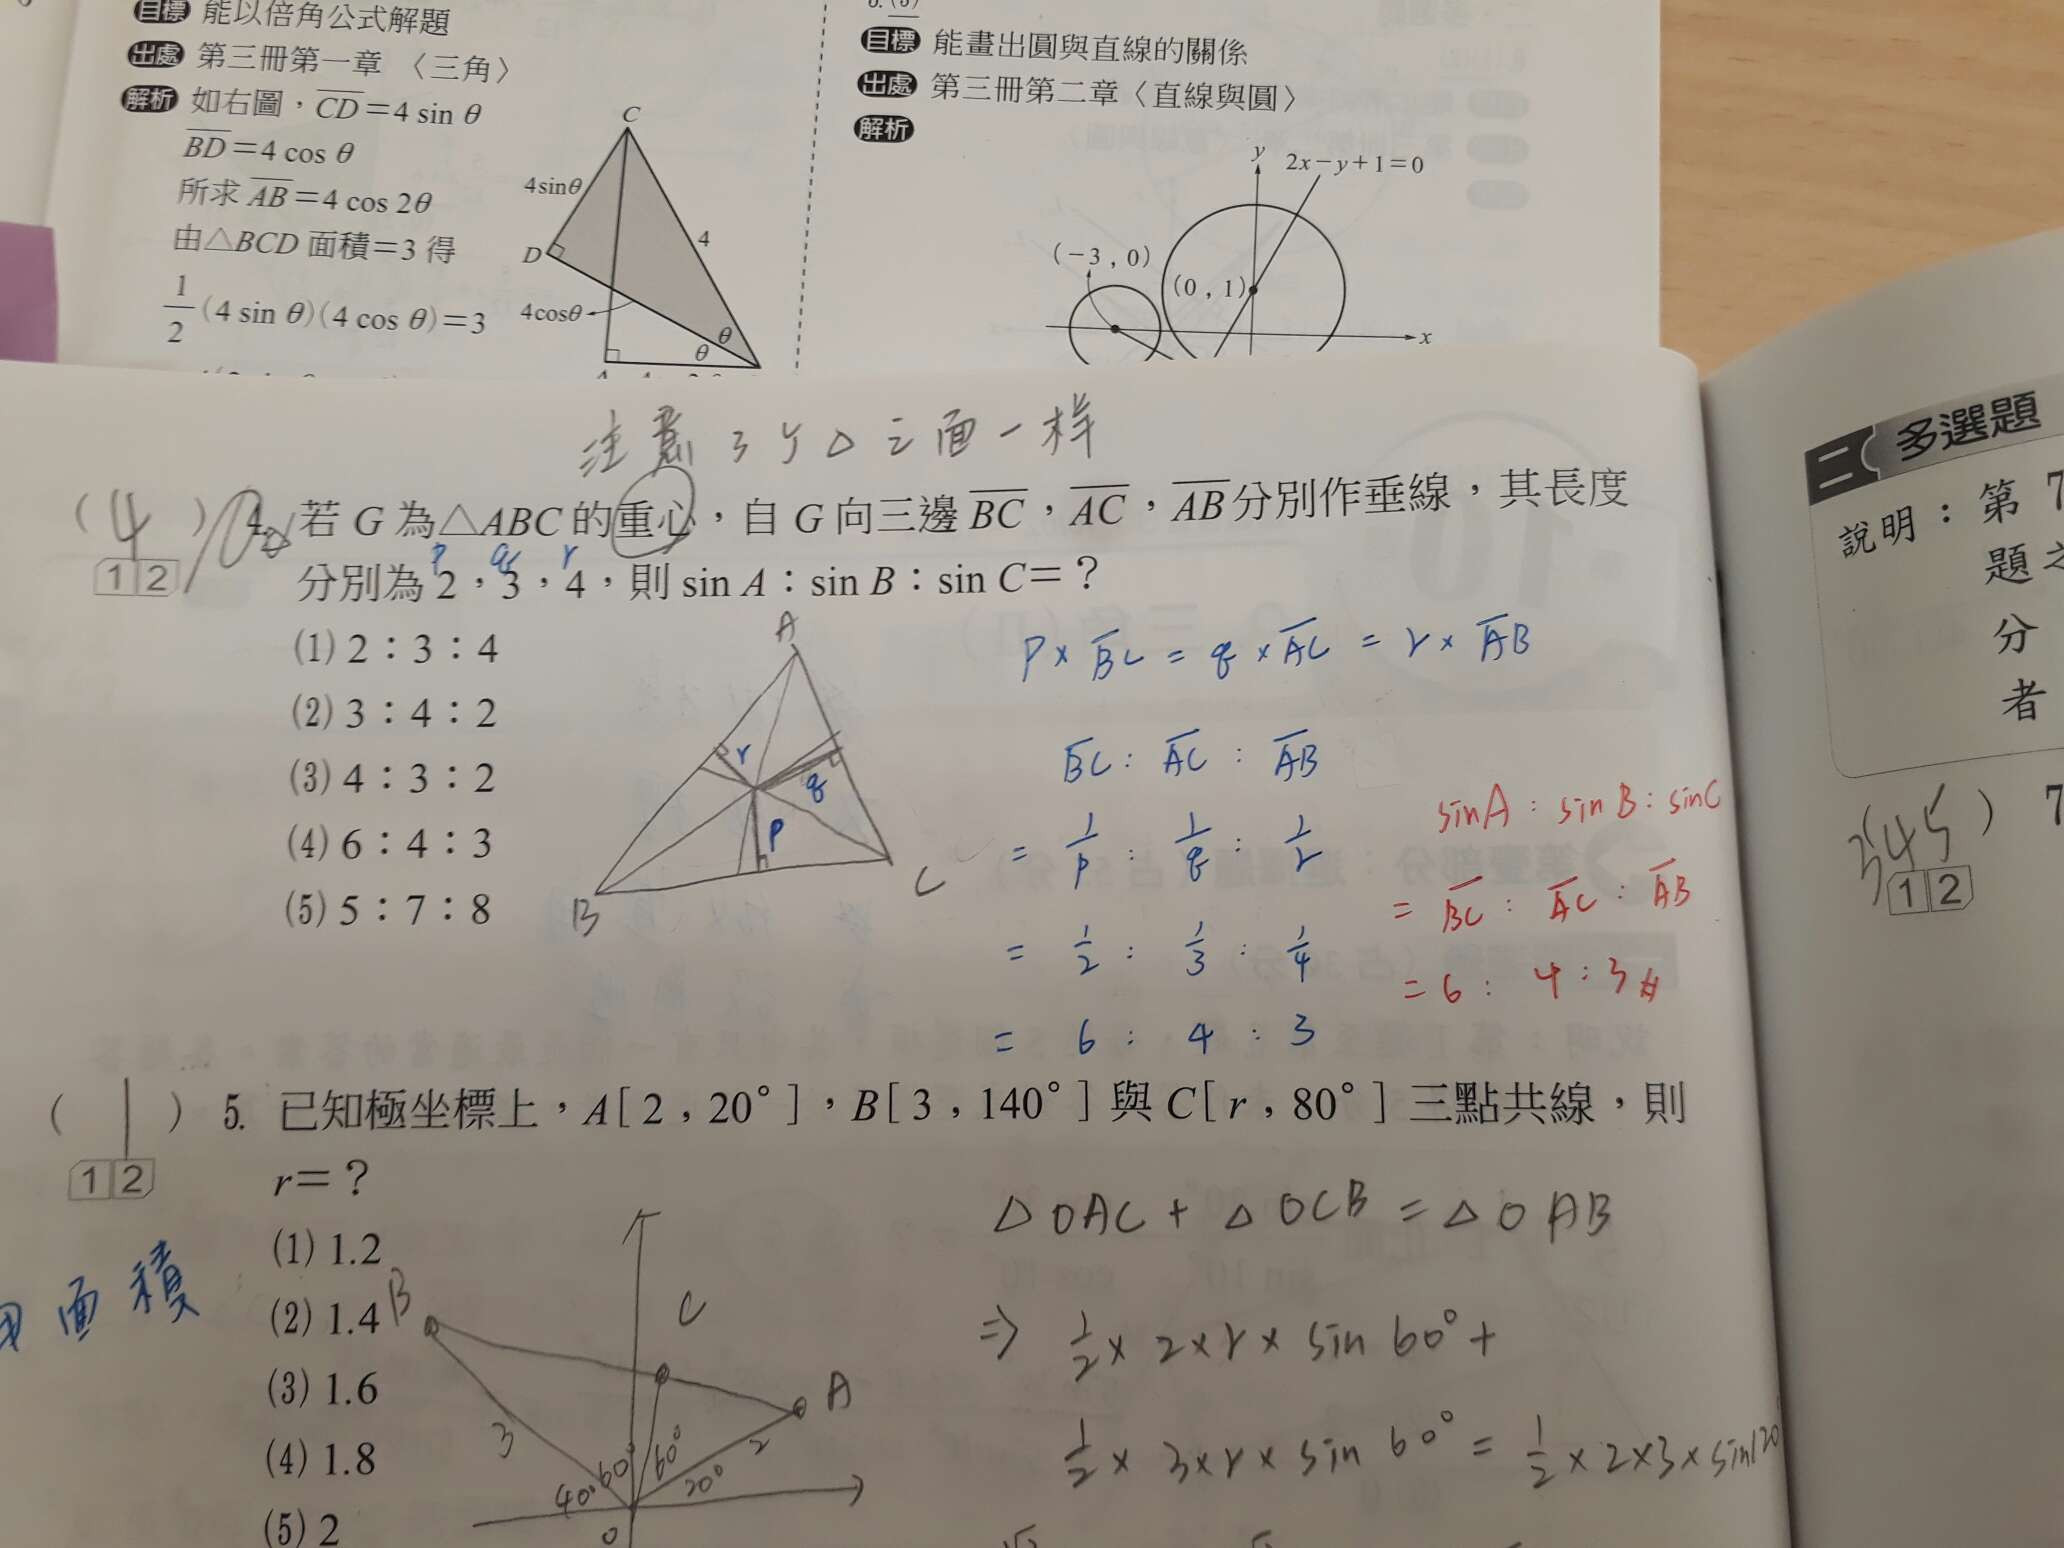 目標 能以倍角公式解題
出處 第三冊第一章 〈三角〉
解析 如右圖，CD＝4 sin θ
BD＝4 cos θ
所求 AB＝4 cos 2θ
由△BCD 面積＝3 得
1/2 (4 sin θ)(4 cos θ)＝3
C
4sinθ
D
4
4cosθ
θ
θ
目標 能畫出圓與直線的關係
出處 第三冊第二章〈直線與圓〉
解析
y
2x－y＋1＝0
(－3，0)
(0，1)
x
注意 3 y △ 三面一样
(4) 4. 若 G 為△ABC 的重心，自 G 向三邊 BC，AC，AB 分別作垂線，其長度
1 2
p q r
分別為 2，3，4，則 sin A：sin B：sin C＝？
(1) 2：3：4
(2) 3：4：2
(3) 4：3：2
(4) 6：4：3
(5) 5：7：8
A
r
q
p
B
C
P × BC = q × AC = r × AB
BC : AC : AB
= 1/p : 1/q : 1/r
= 1/2 : 1/3 : 1/4
= 6 : 4 : 3
sinA : sinB : sinC
= BC : AC : AB
= 6 : 4 : 3 #
(1) 5. 已知極坐標上，A［2，20°］，B［3，140°］與 C［r，80°］三點共線，則
1 2
r＝？
(1) 1.2
(2) 1.4
(3) 1.6
(4) 1.8
(5) 2
面積
B
C
A
3
2
60°
60°
40°
20°
O
△OAC + △OCB = △OAB
⇒ 1/2 × 2 × r × sin 60° +
1/2 × 3 × r × sin 60° = 1/2 × 2 × 3 × sin120°
二 多選題
說明：第 7
題
分
者
(345) 7
1 2